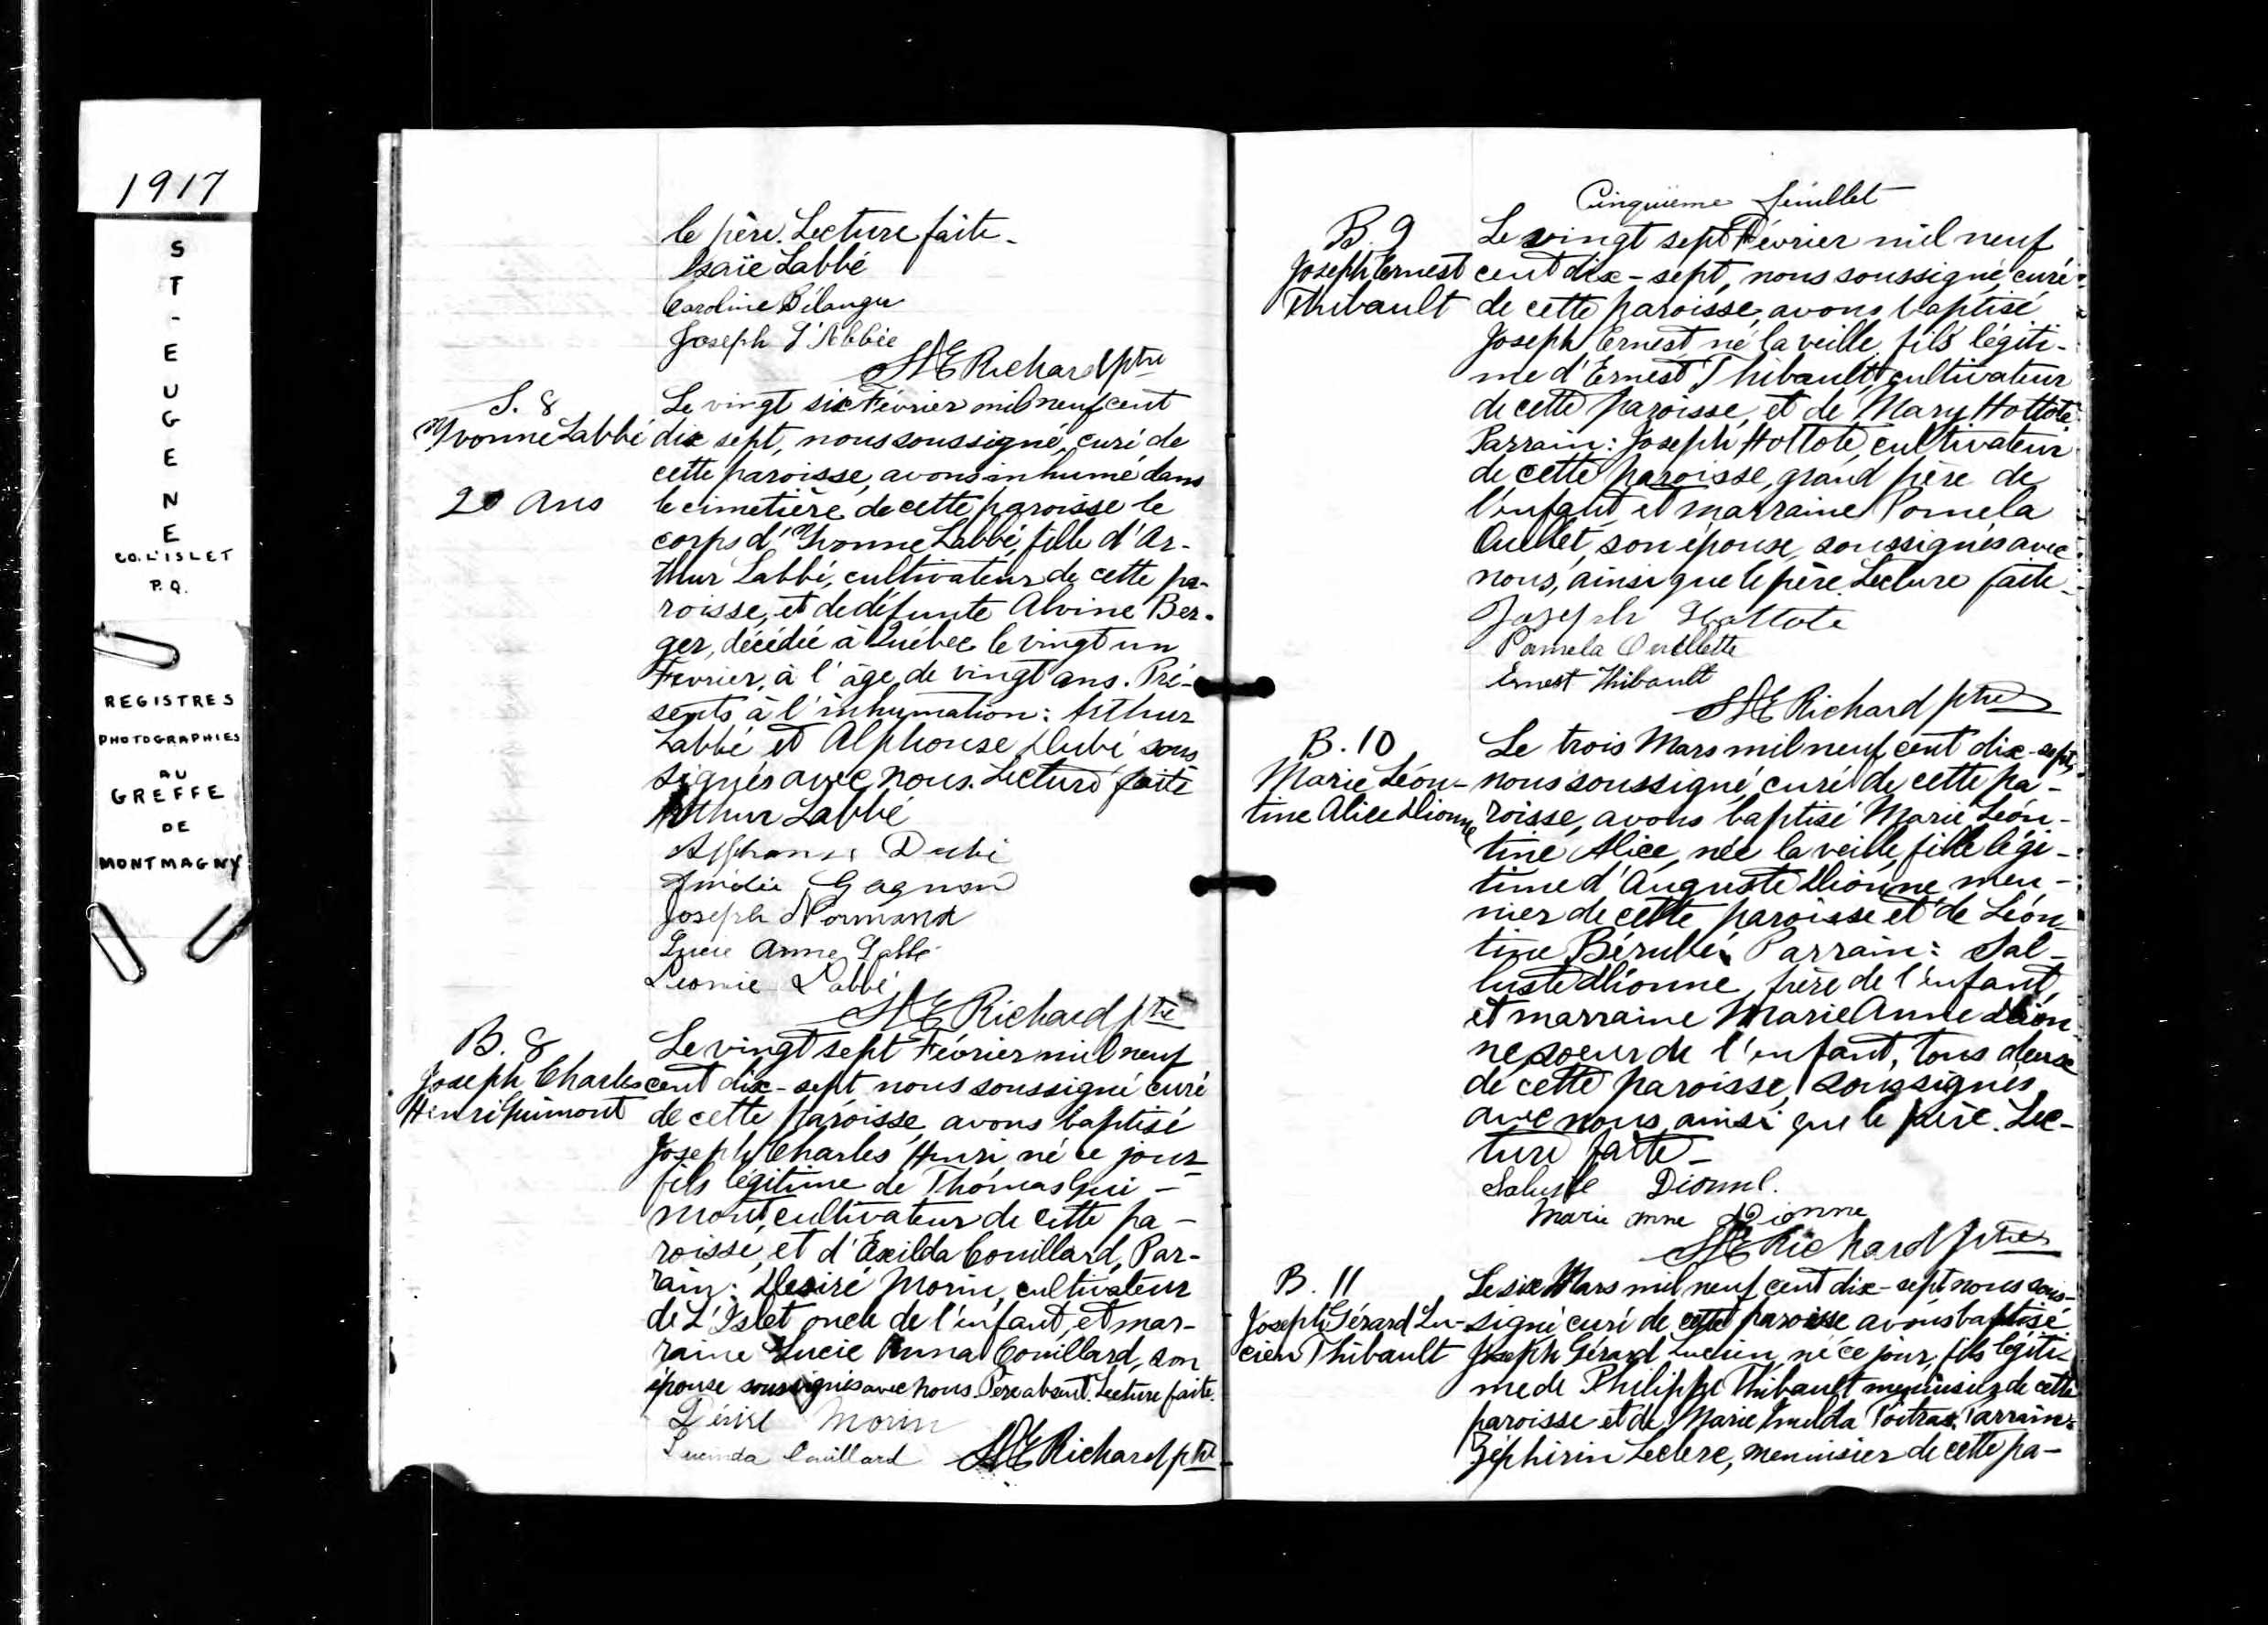 1917
ST-EUGENE
CO. L'ISLET
P.Q.
REGISTRES
PHOTOGRAPHIES
AU
GREFFE
DE
MONTMAGNY
le père. Lecture faite_
Isaïe Labbé
Caroline Bélanger
Joseph L'Abbée
Richard ptre
S. 8
Yvonne Labbé
20 Ans
Le vingt six Février mil neuf cent
dix sept, nous soussigné, curé de
cette paroisse, avons inhumé dans
le cimetière de cette paroisse le
corps d'Yvonne Labbé, fille d'Ar-
thur Labbé, cultivateur de cette pa-
roisse, et de défunte Alvine Ber-
ger, décédée à Québec le vingt un
Février, à l'âge de vingt ans. Pré-
sents à l'inhumation: Arthur
Labbé et Alphonse Dubé sous
signés avec nous. Lecture faite
Arthur Labbé
Alphonse Dubé
Amédée Gagnon
Joseph Normand
Lucie Anne Labbé
Léonie Labbé
Richard ptre
B. 8
Joseph Charles
Henri Guimont
Le vingt sept Février mil neuf
cent dix-sept nous soussigné curé
de cette paroisse avons baptisé
Joseph Charles Henri né ce jour
fils légitime de Thomas Gui-
mont, cultivateur de cette pa-
roisse, et d'Exilda Couillard, Par-
rain: Desiré Morin, cultivateur
de L'Islet oncle de l'enfant, et mar-
raine Lucie Anna Couillard, son
épouse soussignés avec nous. Père absent. Lecture faite.
Désiré Morin
Lucinda Couillard Richard ptre
Cinquième feuillet
B. 9
Joseph Ernest
Thibault
Le vingt sept Février mil neuf
cent dix-sept, nous soussigné, curé
de cette paroisse, avons baptisé
Joseph Ernest né la veille, fils légiti-
me d'Ernest Thibault cultivateur
de cette paroisse, et de Mary Hottote
Parrain: Joseph Hottote, cultivateur
de cette paroisse, grand père de
l'enfant et marraine Pomela
Ouellet, son épouse, soussignés avec
nous, ainsi que le père. Lecture faite_
Joseph Hottote
Pamela Ouellette
Ernest Thibault
Richard ptre
B. 10
Marie Léon-
tine Alice Dionne
Le trois Mars mil neuf cent dix-sept,
nous soussigné, curé de cette pa-
roisse, avons baptisé Marie Léon-
tine Alice, née la veille, fille légi-
time d'Auguste Dionne meu-
nier de cette paroisse et de Léon-
tine Bérubé. Parrain: Sal-
luste Dionne, frère de l'enfant,
et marraine Marie Anne Dion
ne, soeur de l'enfant, tous deux
de cette paroisse, soussignés
avec nous, ainsi que le père. Lec-
ture faite_
Saluste Dionne.
Marie Anne Dionne
Richard ptre
B. 11
Joseph Gérard Lu-
cien Thibault
Le six Mars mil neuf cent dix-sept nous sous-
signé curé de cette paroisse avons baptisé
Joseph Gérard Lucien, né ce jour, fils légiti-
me de Philippe Thibault menuisier de cette
paroisse et de Marie Imelda Poitras. Parrain:
Zéphirin Leclerc, menuisier de cette pa-